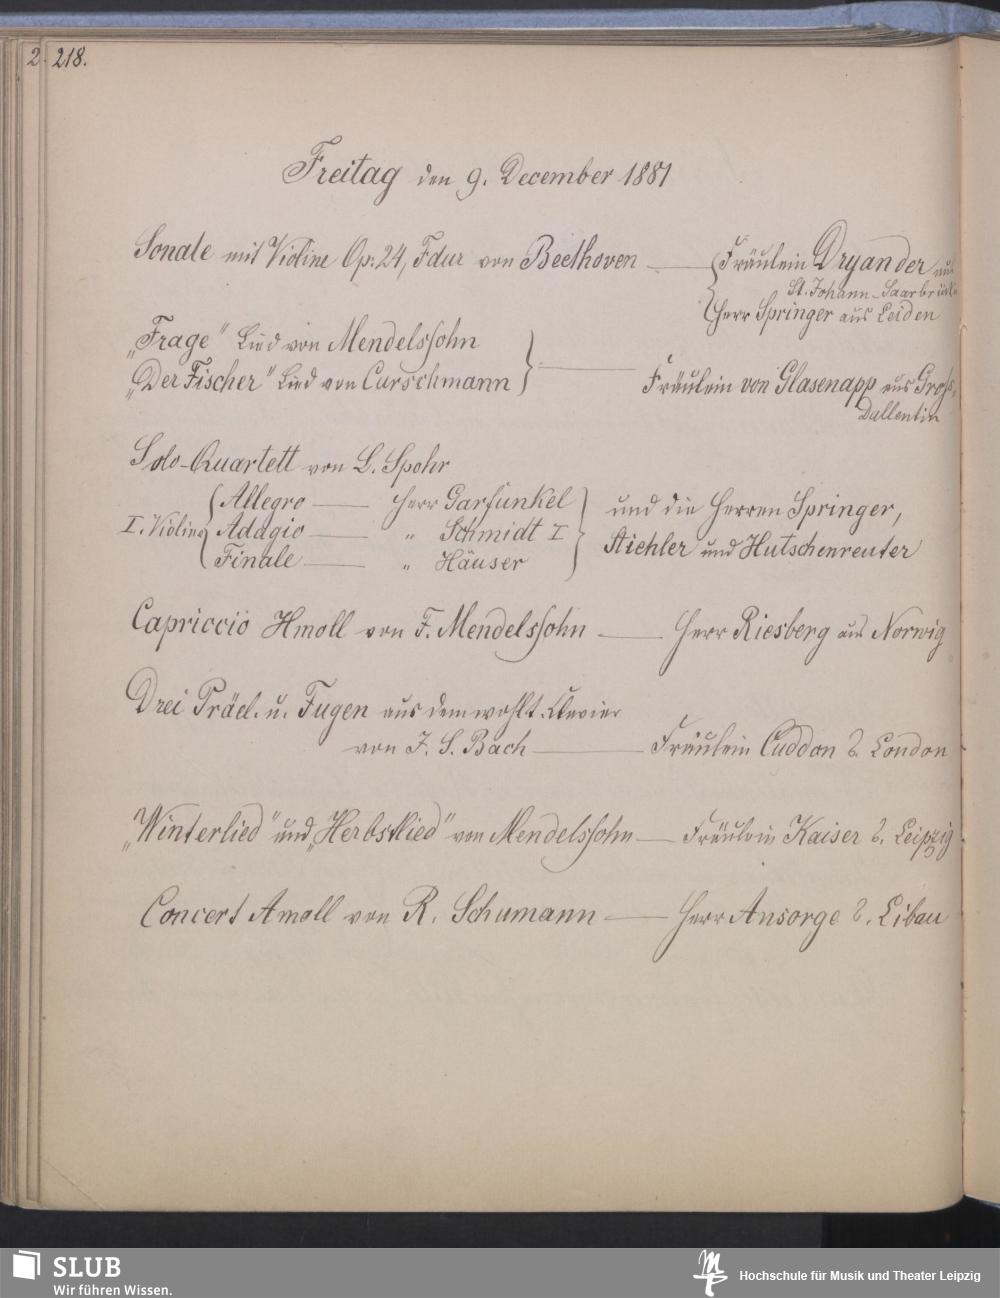 2. 218.
Freitag den 9. December 1881
Sonate mit Violine Op. 24, Fdur von Beethoven — Fräulein Dryander aus
St. Johann-Saarbrück
Herr Springer aus Leiden
„Frage" Lied von Mendelssohn
„Der Fischer" Lied von Curschmann — Fräulein von Glasenapp aus Gross-
Dallentin
Solo-Quartett von L. Spohr
I. Violine Allegro — Herr Garfunkel und die Herren Springer,
Adagio — " Schmidt I Stichler und Hutschenreuter
Finale — " Häuser
Capriccio Hmoll von F. Mendelssohn — Herr Riesberg aus Norwig
Drei Präel. u. Fugen aus dem wohlt. Clavier
von J. S. Bach — Fräulein Cuddon a. London
„Winterlied" und „Herbstlied" von Mendelssohn — Fräulein Kaiser a. Leipzig
Concert Amoll von R. Schumann — Herr Ansorge a. Libau
SLUB
Wir führen Wissen.
Hochschule für Musik und Theater Leipzig